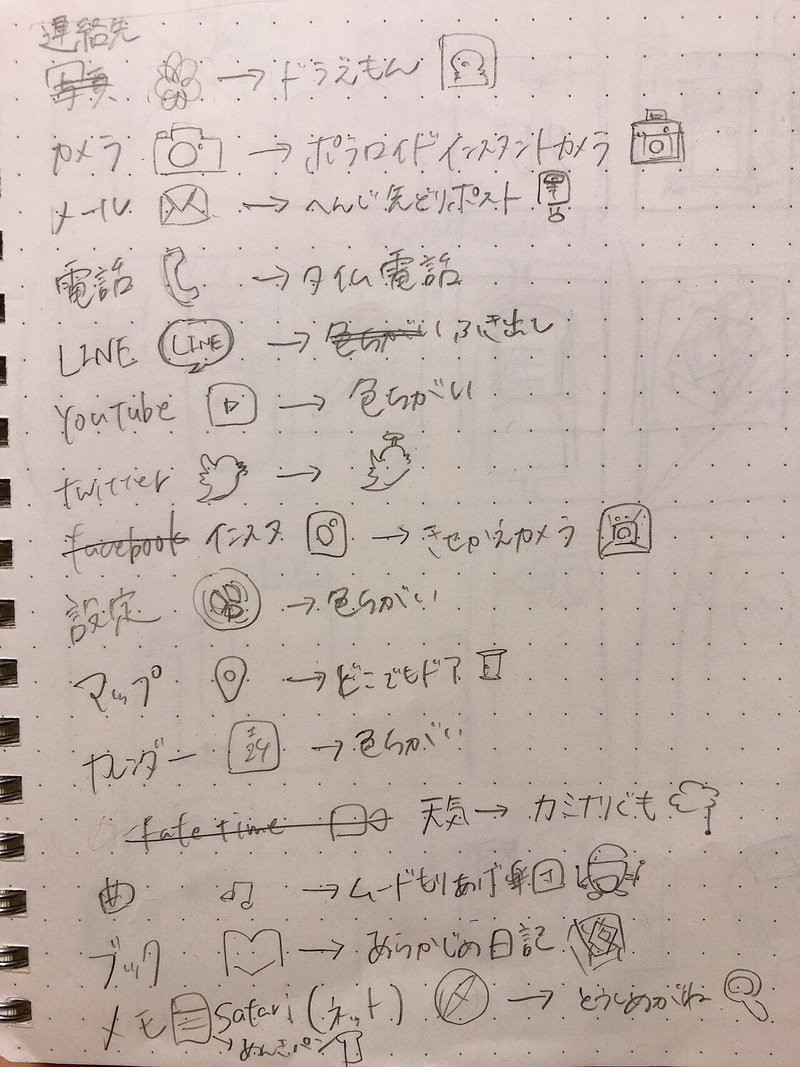 連絡先
写真 → ドラえもん
カメラ → ポラロイドインスタントカメラ
メール → へんじ先どりポスト
電話 → タイム電話
LINE LINE → 色ちがい ふき出し
YouTube → 色ちがい
twitter →
facebook インスタ → きせかえカメラ
設定 → 色ちがい
マップ → どこでもドア
カレンダー 24 → 色ちがい
fate time 天気 → カミナリぐも
→ ムードもりあげ楽団
ブック → あらかじめ日記
メモ Safari (ネット) → とうしめがね
→ あんきパン